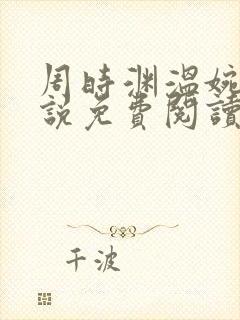 周時渊溫婉
說免費閱讀
千波